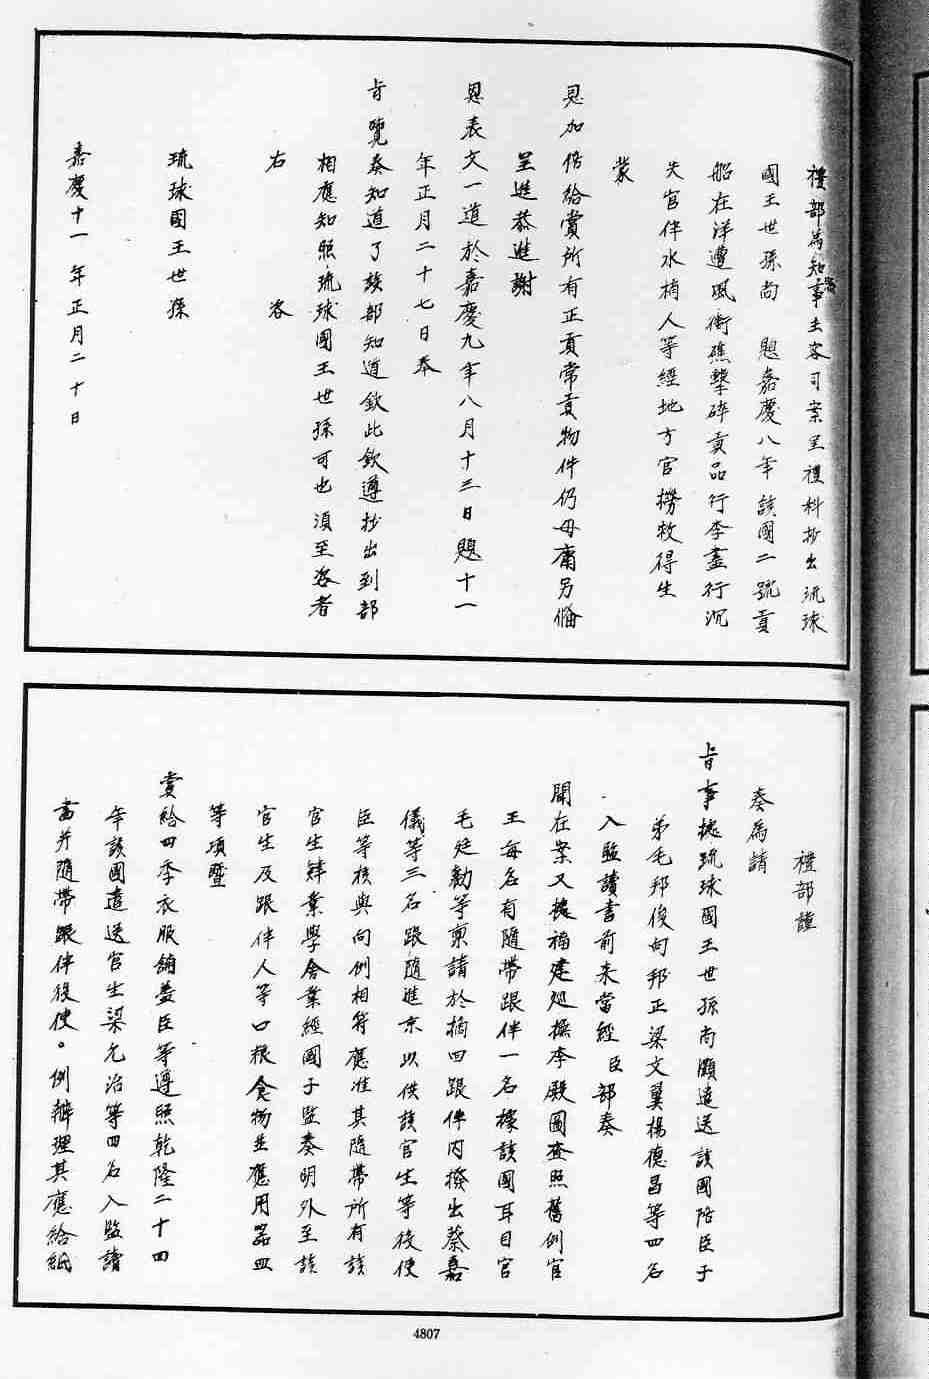 禮部為知照事主客司案呈禮科抄出琉球
國王世孫尚 題嘉慶八年該國二號貢
船在洋遭風衝礁擊碎貢品行李盡行沉
失官伴水梢人等經地方官撈救得生
蒙
恩加倍給賞所有正貢常貢物件仍毋庸另備
呈進恭進謝
恩表文一道於嘉慶九年八月十三日題十一
年正月二十七日奉
旨覽奏知道了該部知道欽此欽遵抄出到部
相應知照琉球國王世孫可也須至咨者
右 咨
琉球國王世孫
嘉慶十一年正月二十日
禮部謹
奏為請
旨事據琉球國王世孫尚灝遣送該國陪臣子
弟毛邦俊向邦正梁文翼楊德昌等四名
入監讀書前來當經臣部奏
聞在案又據福建巡撫李殿圖查照舊例官
王每名有隨帶跟伴一名據該國耳目官
毛廷勷等稟請於摘回跟伴內撥出蔡嘉
儀等三名跟隨進京以供該官生等役使
臣等核與向例相符應准其隨帶所有該
官生肄業學舍業經國子監奏明外至該
官生及跟伴人等口粮食物並應用器皿
等項暨
賞給四季衣服鋪蓋臣等遵照乾隆二十四
年該國遣送官生梁允治等四名入監讀
書并隨帶跟伴役使。例辦理其應給紙
4807